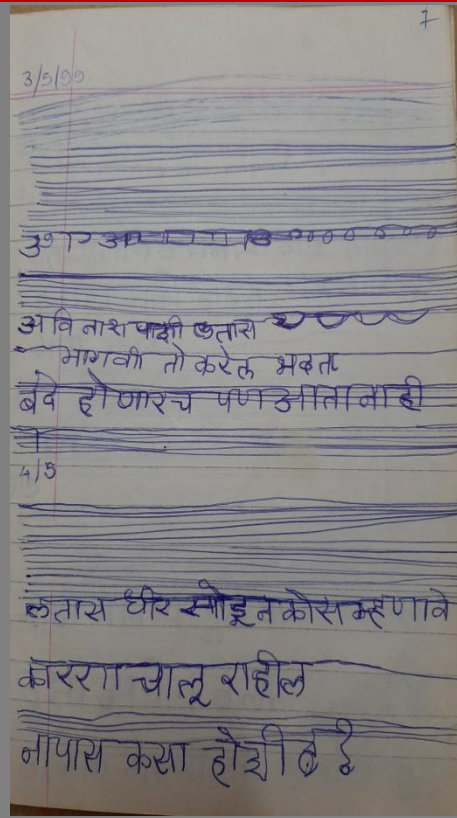 7
3/5/99
अविनाश पाशी लतास
मागवी तो करेल मदत
बंद होणारच पण आता नाही
4/5
लतास धीर सोडू नकोस म्हणावे
कारण चालू राहील
नापास कसा होशील